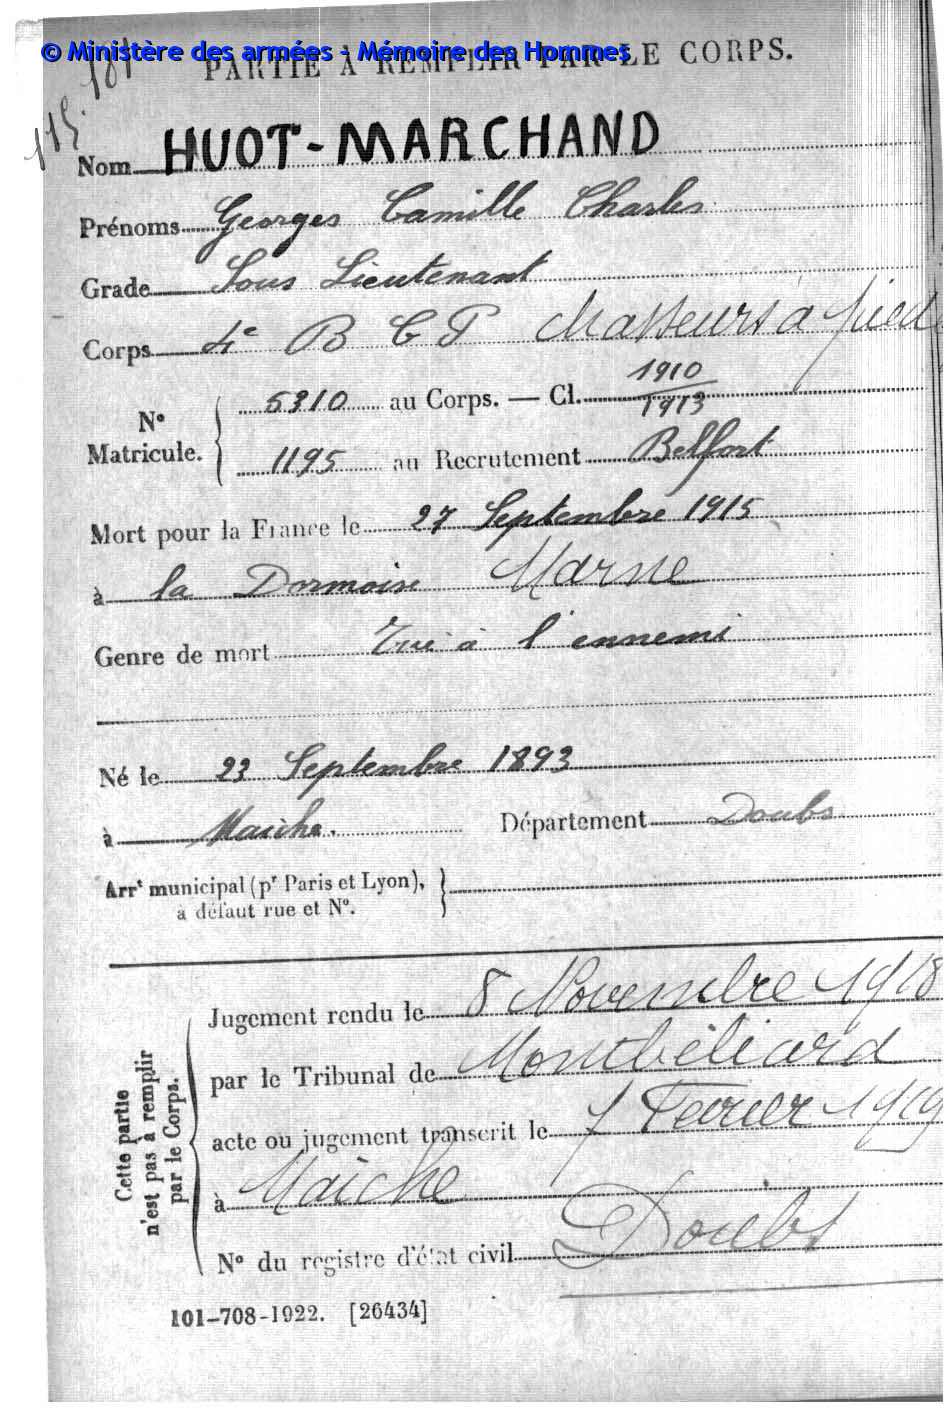 © Ministère des armées - Mémoire des Hommes
PARTIE À REMPLIR PAR LE CORPS.
Nom HUOT-MARCHAND
Prénoms Georges Camille Charles
Grade Sous Lieutenant
Corps 4e B C P Chasseurs à pied
N° Matricule. 5310 au Corps. — Cl. 1910/1913
1195 au Recrutement Belfort
Mort pour la France le 27 Septembre 1915
à la Dormoise Marne
Genre de mort Tué à l'ennemi
Né le 23 Septembre 1893
à Maiche. Département Doubs
Arrt municipal (pr Paris et Lyon),
à défaut rue et N°.
Cette partie
n'est pas à remplir
par le Corps.
Jugement rendu le 8 Novembre 1918
par le Tribunal de Montbéliard
acte ou jugement transcrit le 7 Fevrier 1919
à Maiche
Doubs
N° du registre d'état civil
101-708-1922. [26434]